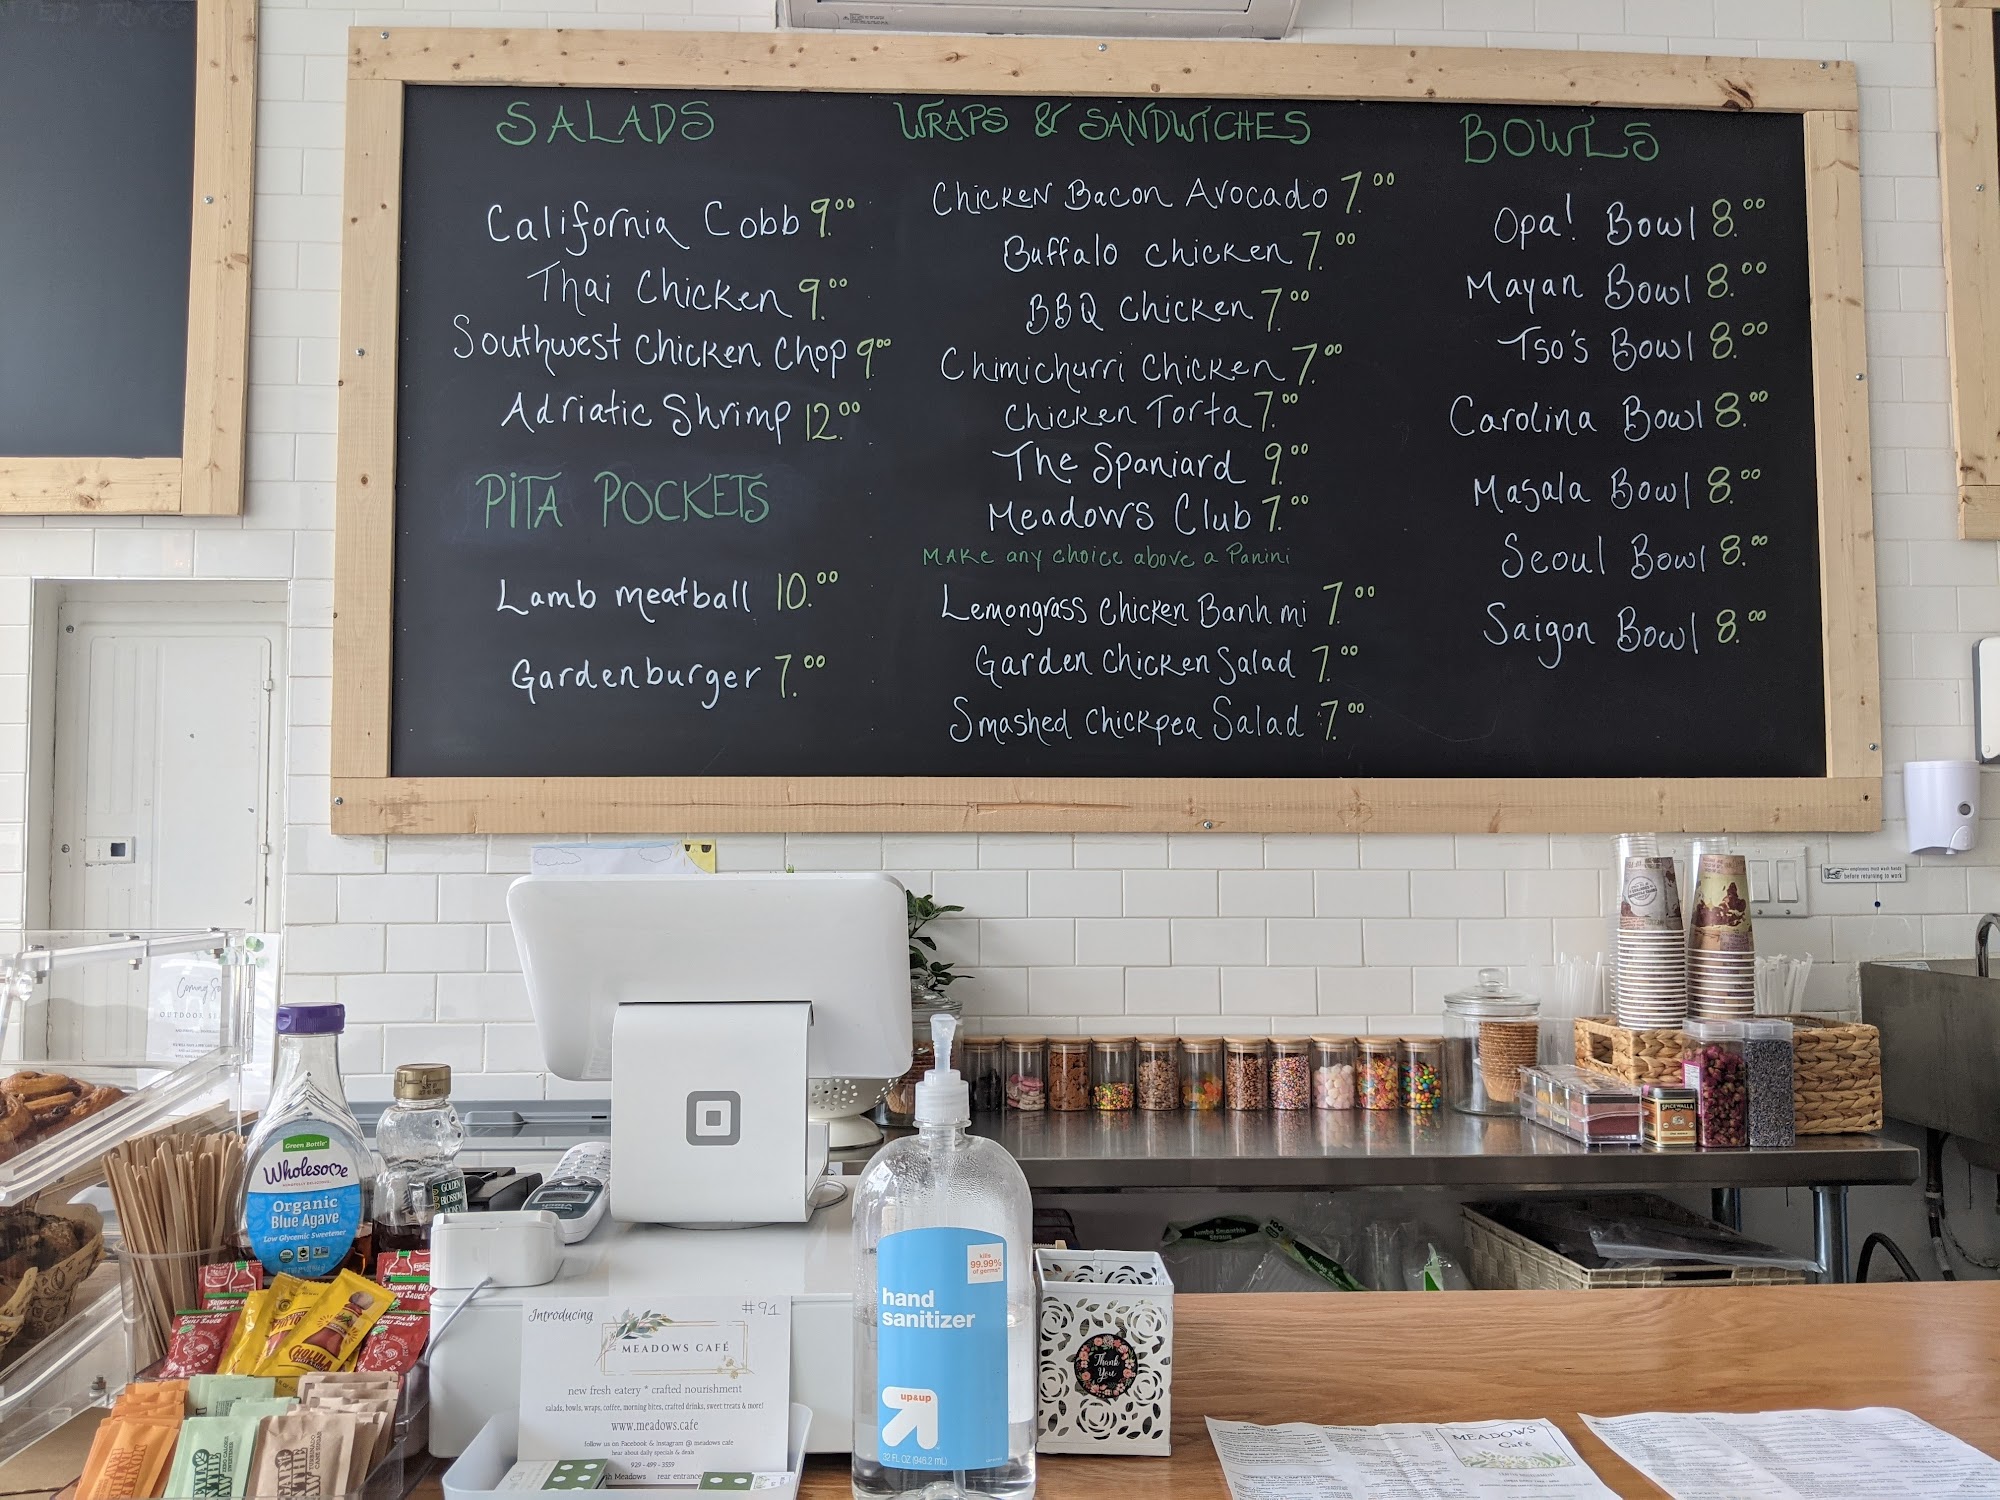 SALADS
California Cobb 9.00
Thai Chicken 9.00
Southwest Chicken Chop 9.00
Adriatic Shrimp 12.00
PITA POCKETS
Lamb meatball 10.00
Gardenburger 7.00
WRAPS & SANDWICHES
Chicken Bacon Avocado 7.00
Buffalo Chicken 7.00
BBQ Chicken 7.00
Chimichurri Chicken 7.00
Chicken Torta 7.00
The Spaniard 9.00
Meadows Club 7.00
Make any choice above a Panini
Lemongrass Chicken Banh mi 7.00
Garden Chicken Salad 7.00
Smashed Chickpea Salad 7.00
BOWLS
Opa! Bowl 8.00
Mayan Bowl 8.00
Tso's Bowl 8.00
Carolina Bowl 8.00
Masala Bowl 8.00
Seoul Bowl 8.00
Saigon Bowl 8.00
before returning to work
Coming
Green Bottle
Wholesome
Organic
Blue Agave
Low Glycemic Sweetener
GOLDEN
BLOSSOM
HONEY
SRIRACHA HOT
CHILI SAUCE
CHOLULA
Introducing
#91
MEADOWS CAFÉ
new fresh eatery * crafted nourishment
salads, bowls, wraps, coffee, morning bites, crafted drinks, sweet treats & more!
www.meadows.cafe
follow us on Facebook & Instagram @ meadows cafe
hear about daily specials & deals
929-499-3559
Meadows rear entrance
kills
99.99%
of germs*
hand
sanitizer
up&up
32 FL OZ (946.2 mL)
Thank
You
SPICEWALLA
Jumbo Smoothie
Straws
MEADOWS
Café